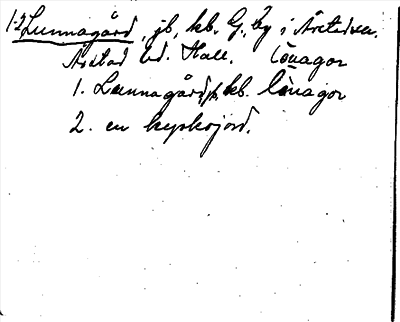 1-2 Lunnagård, jb, kb. G., by i Årstad sn.
Årstad hd. Hall. lönagor
1. Lunnagård, kb. lönagor
2. en kyrkojord.